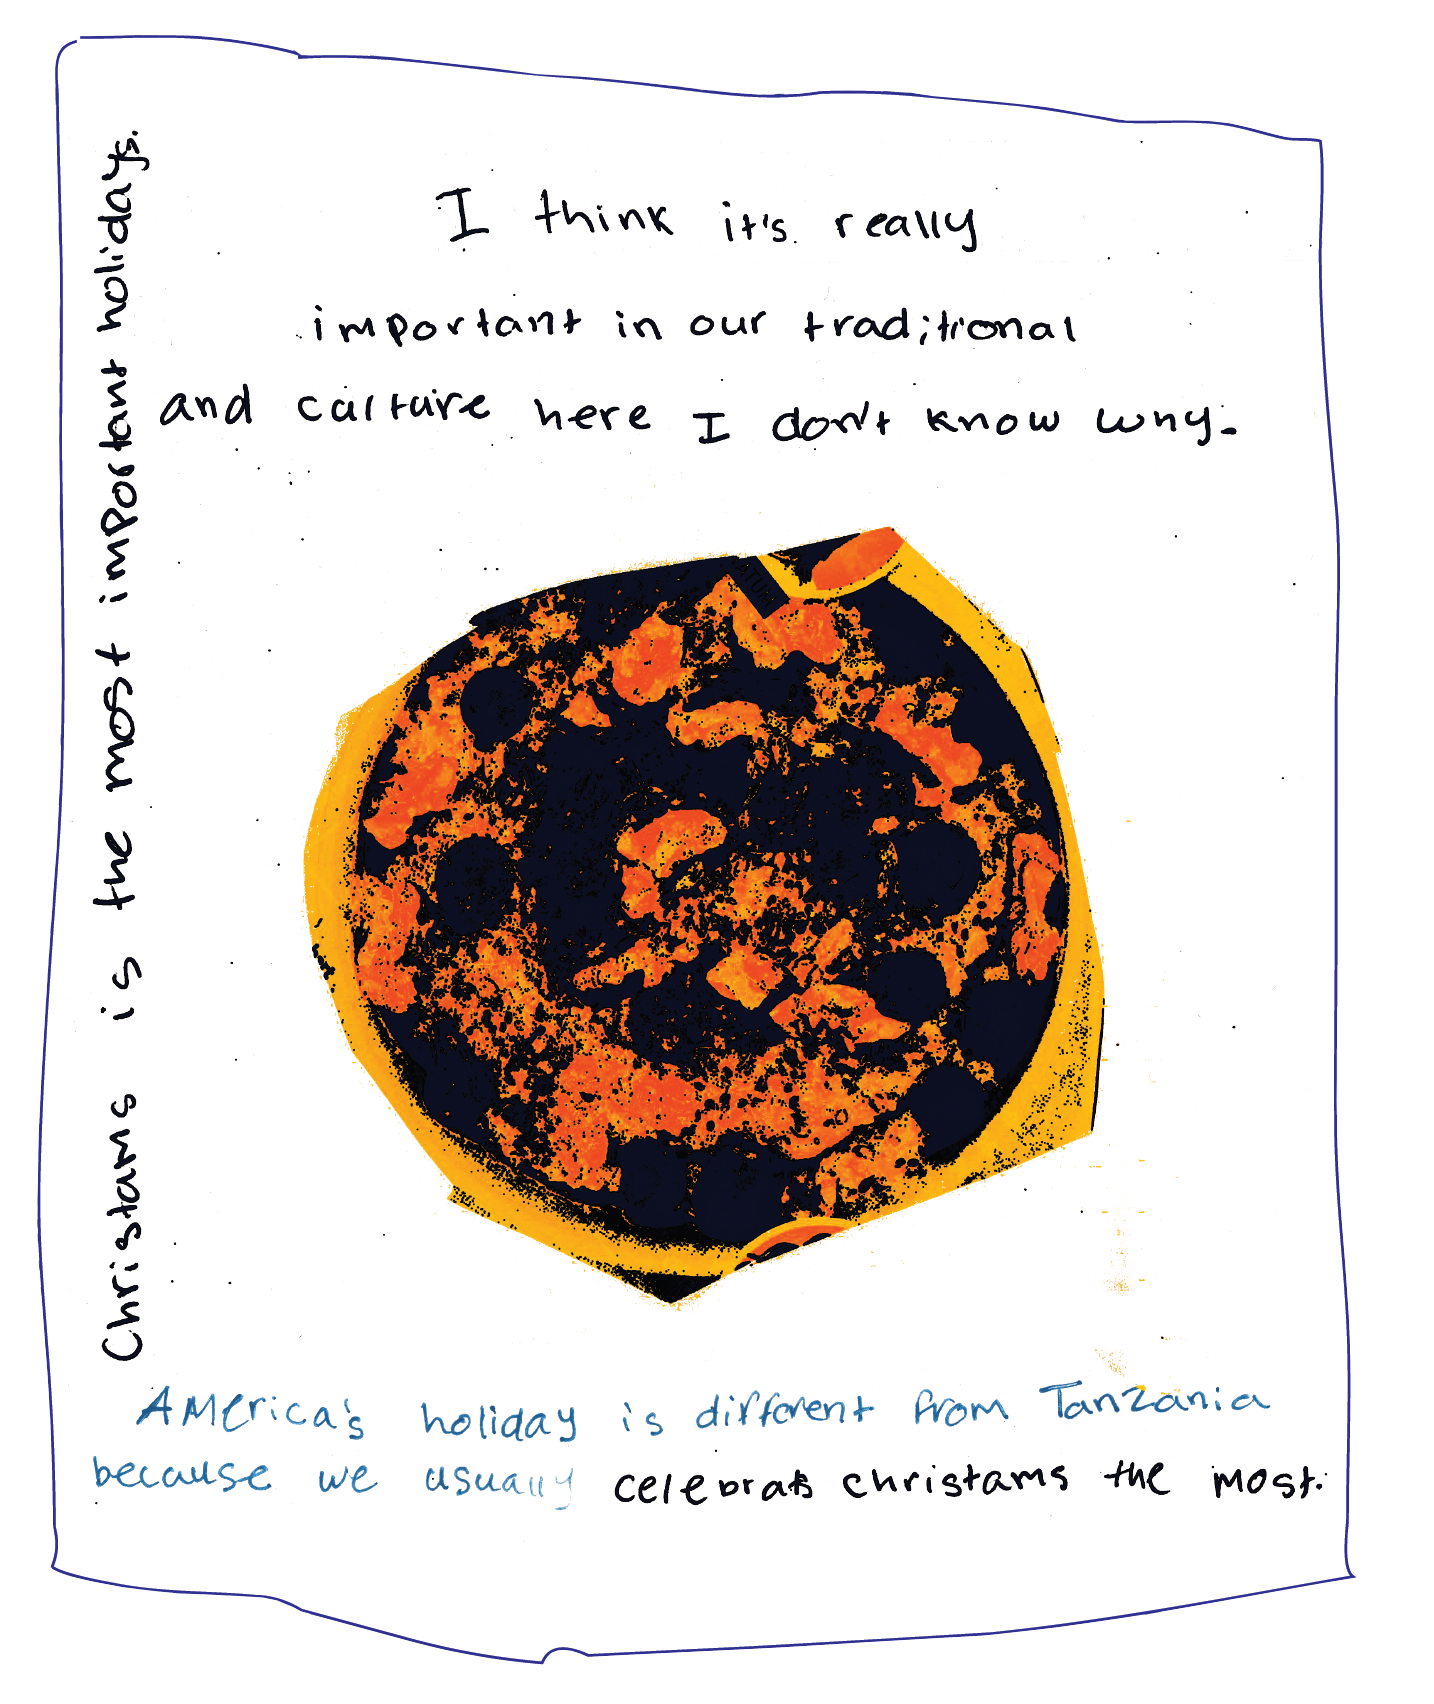 Christams is the most important holidays.
I think it's really
important in our traditional
and culture here I don't know why.
America's holiday is different from Tanzania
because we usually celebrats christams the most.